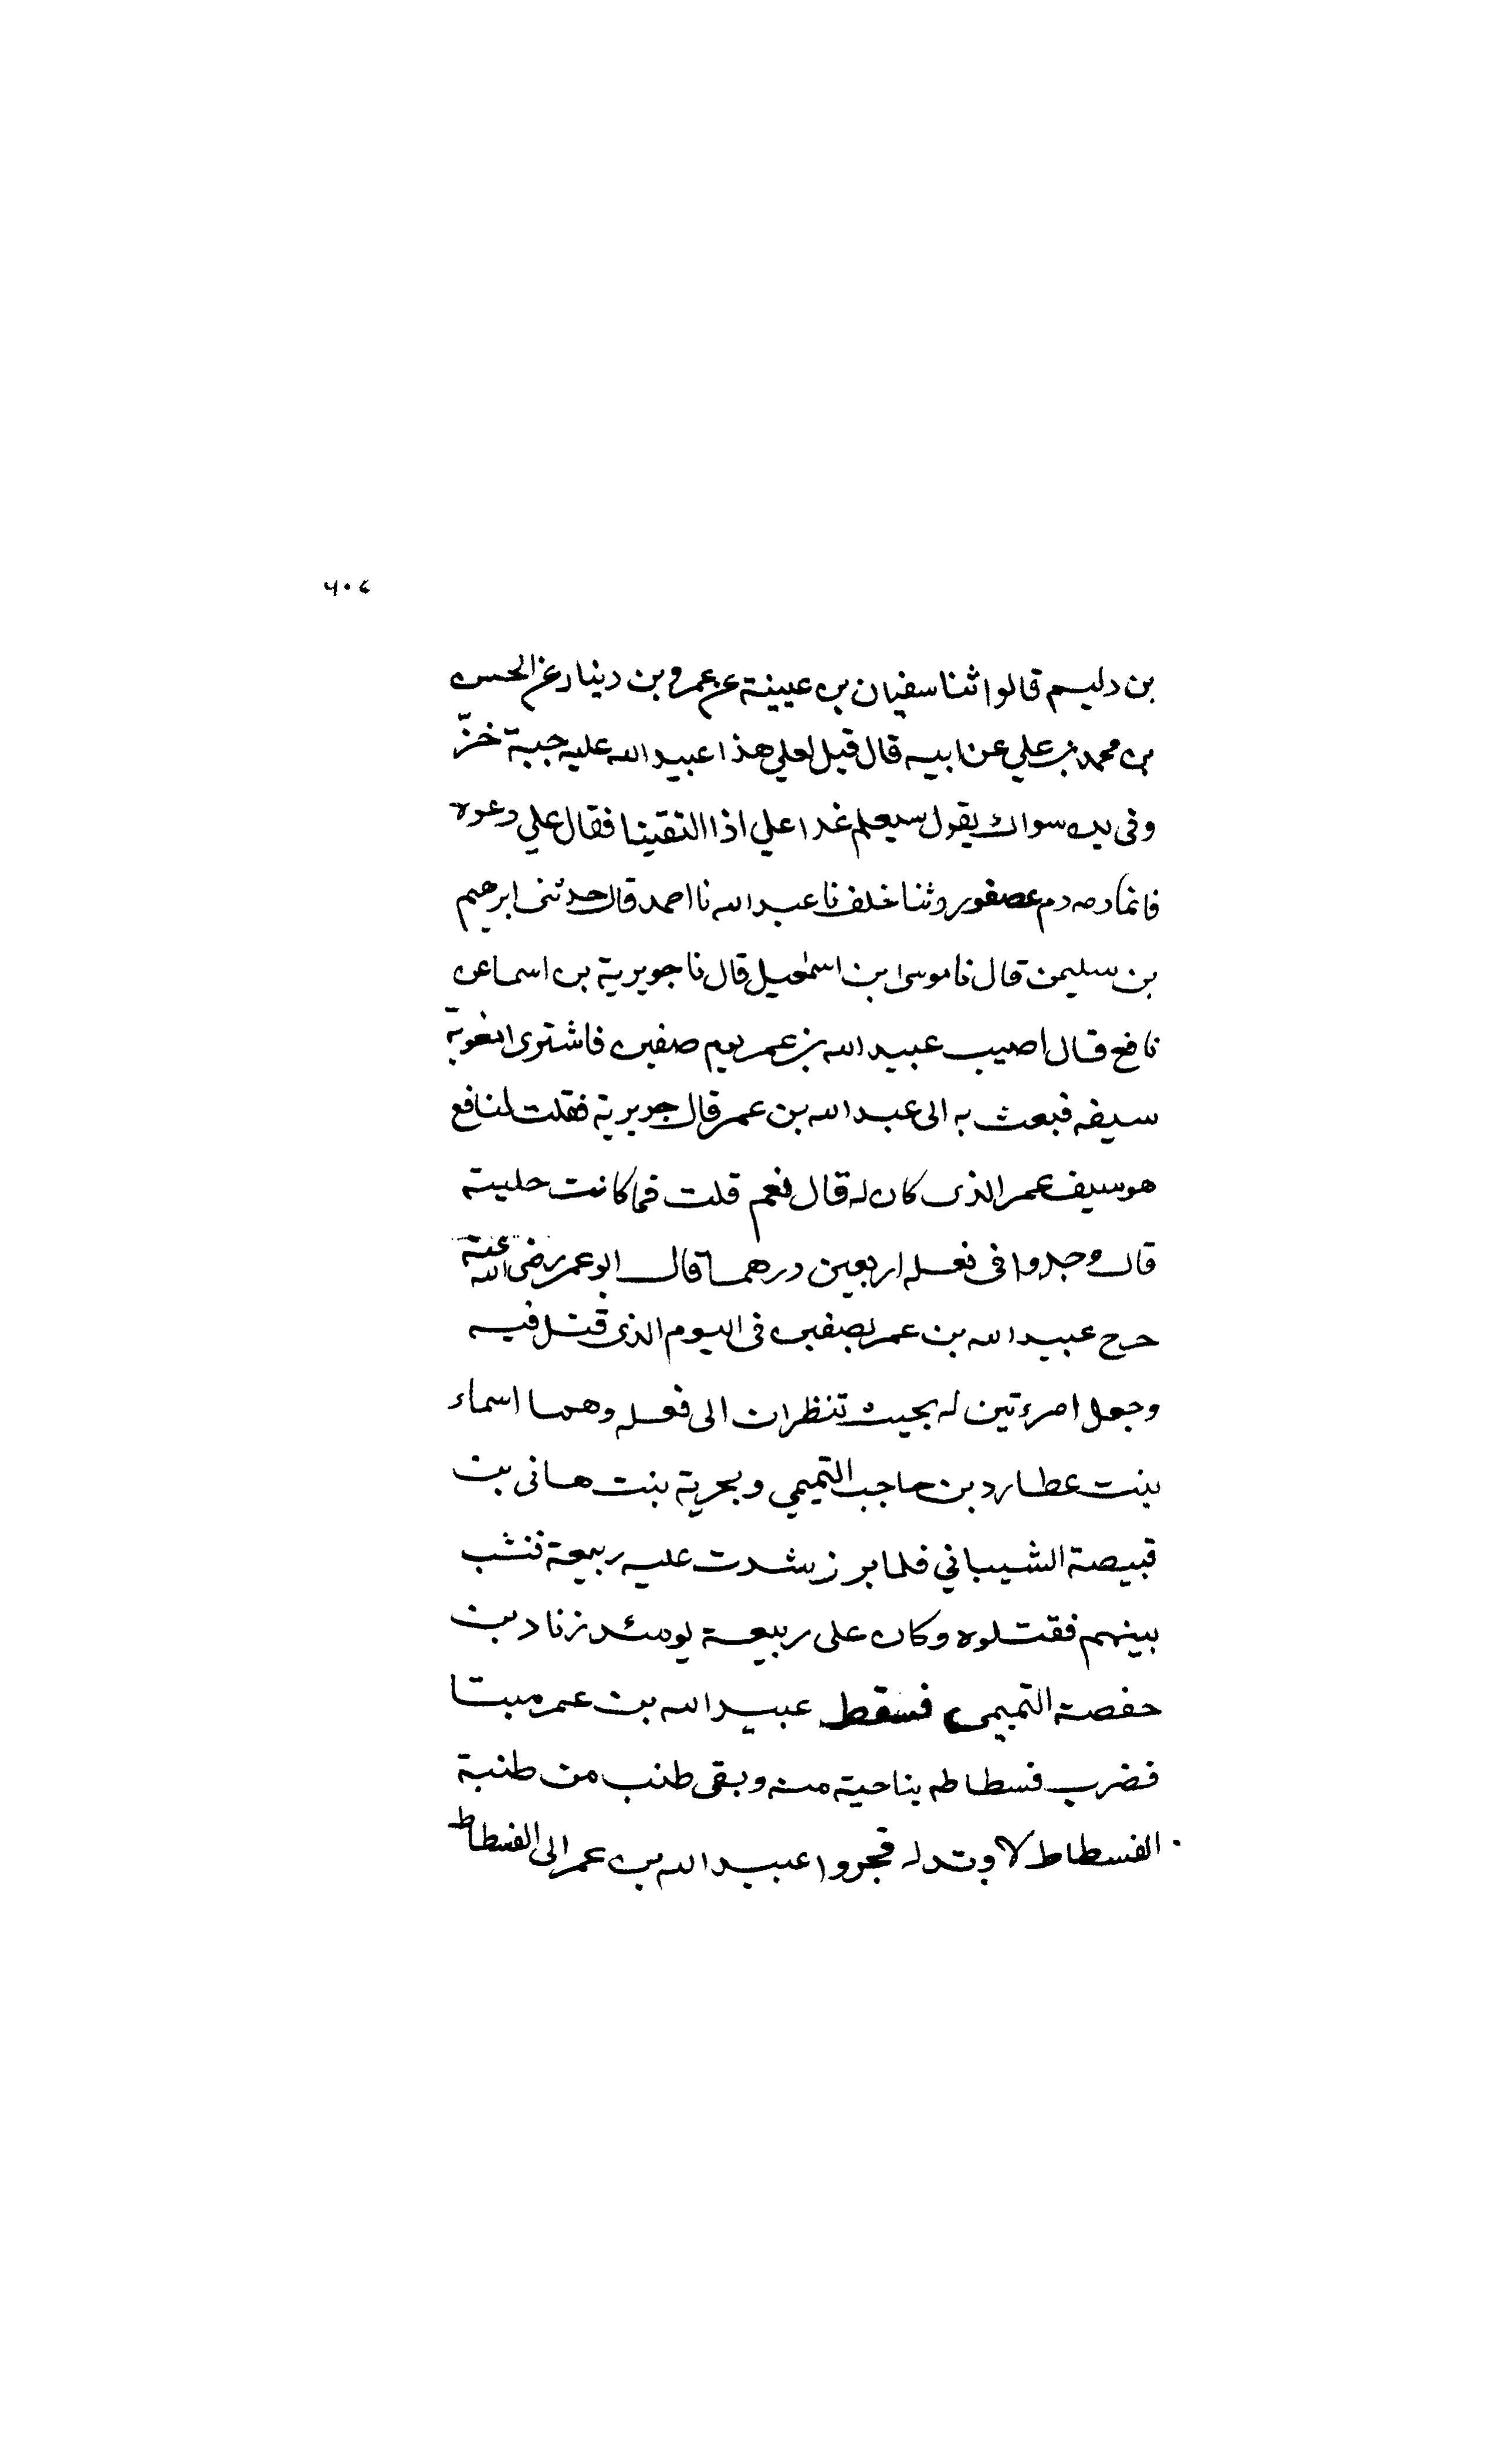 ٦٠٤
بن دليم قالوا ثنا سفيان بن عيينة عن عمرو بن دينار عن الحسن
بن محمد بن علي عن ابيه قال قيل لعلي هذا عبيد الله عليه جبة خزّ
وفى يده سواك يقول سيعلم غدا علي اذا التقينا فقال علي دعوه
فانما دمه دم عصفور وثنا خلف نا عبد الله نا احمد قال حدثنى ابرهيم
بن سليمن قال نا موسى بن اسمعيل قال نا جويرية بن اسما عن
نافع قال اصيب عبيد الله بن عمر يوم صفين فاشترى معوية
سيفه فبعث به الى عبد الله بن عمر قال جويرية فقلت لنافع
هو سيف عمر الذى كان له قال نعم قلت فما كانت حليته
قال وجدوا فى نعله اربعين درهما قال ابو عمر رضى الله عنه
خرج عبيد الله بن عمر بصفين فى اليوم الذى قتل فيه
وجعل امرءتين له بحيث تنظران الى فعله وهما اسماء
بنت عطارد بن حاجب التميمي وبحرية بنت هانى بن
قبيصة الشيباني فلما برز شدت عليه ربيعة فنشب
بينهم فقتلوه وكان على ربيعة يومئد زناد بن
حفصة التميمى فسقط عبيد الله بن عمر ميتا
فضرب فسطاطه بناحية منه وبقى طنب من طنبة
الفسطاط لا وتد له فجروا عبيد الله بن عمر الى الفسطاط